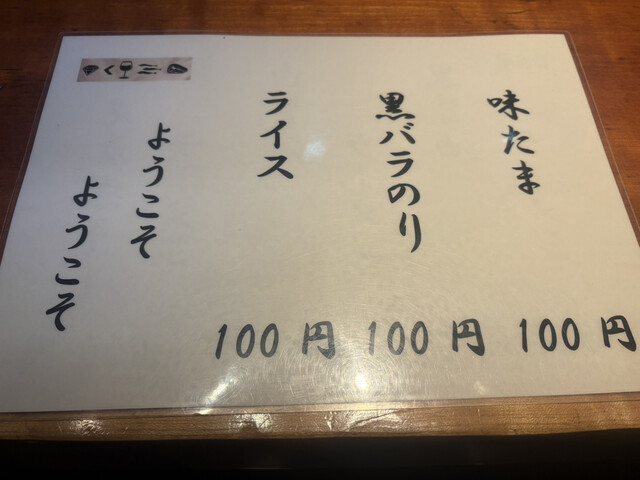 味たま 100円
黒バラのり 100円
ライス 100円
ようこそ
ようこそ